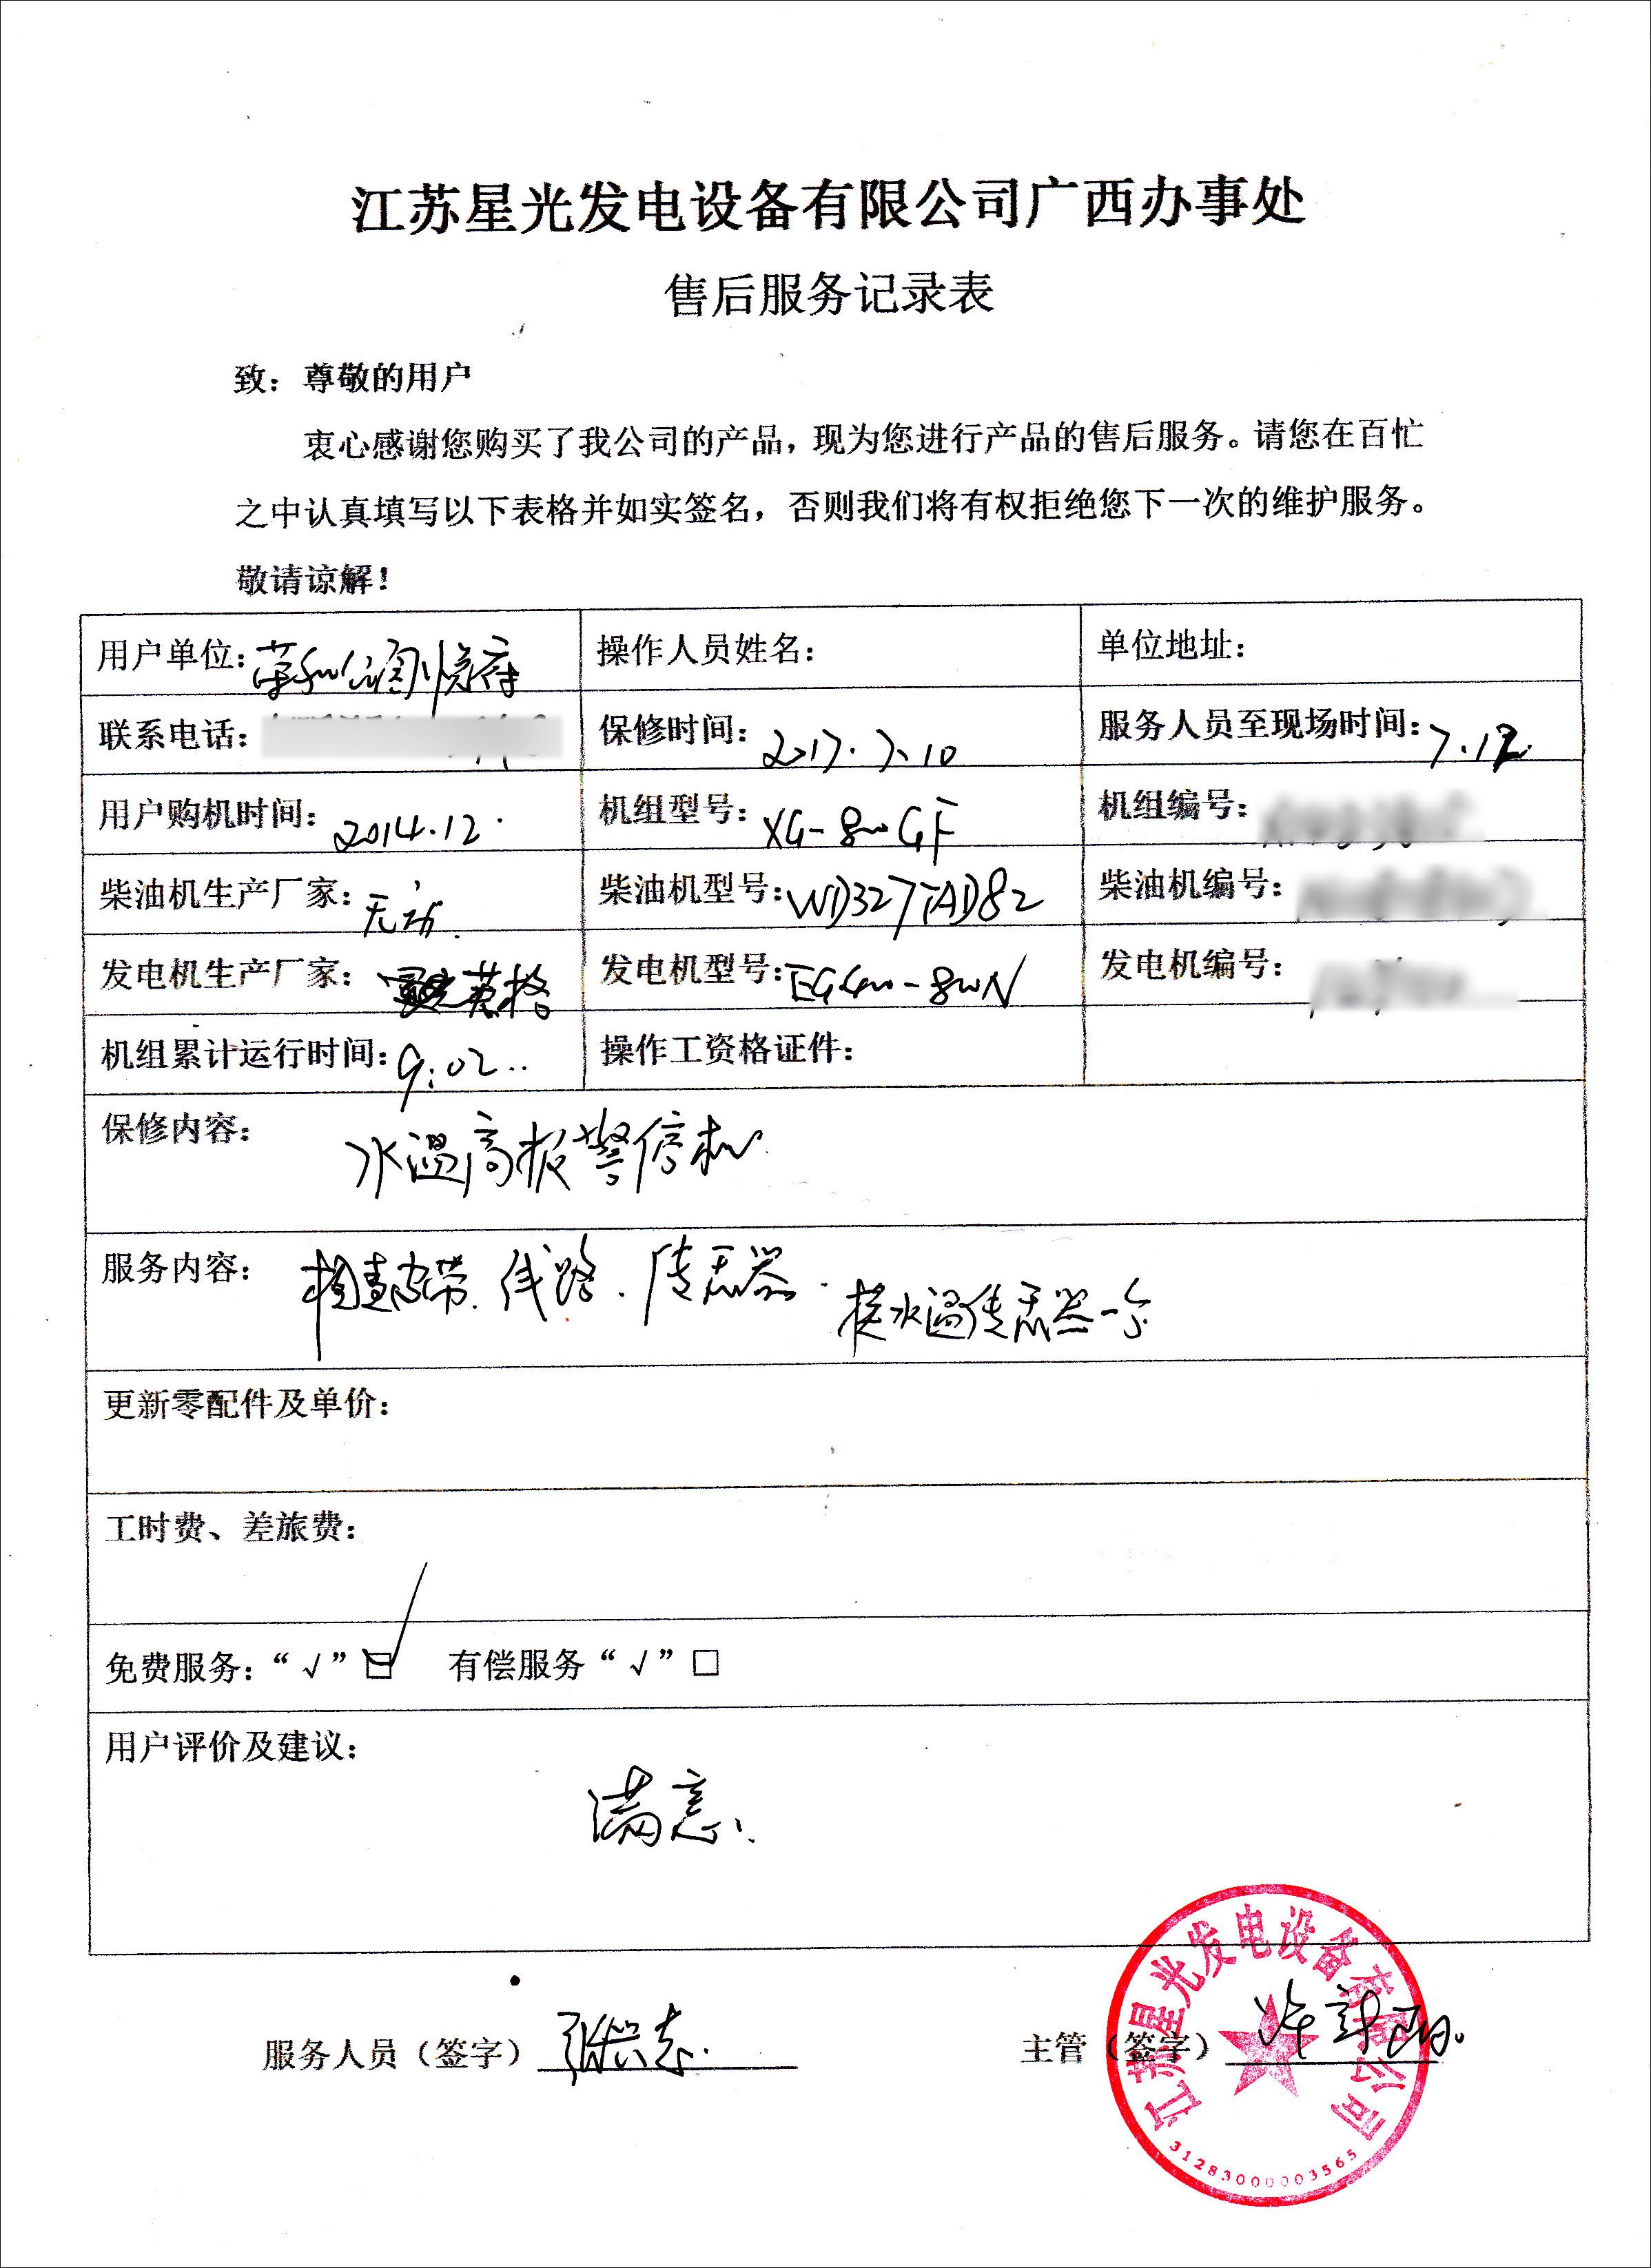 江苏星光发电设备有限公司广西办事处
售后服务记录表
致：尊敬的用户
衷心感谢您购买了我公司的产品，现为您进行产品的售后服务。请您在百忙
之中认真填写以下表格并如实签名，否则我们将有权拒绝您下一次的维护服务。
敬请谅解！
用户单位：荣和公园悦府 操作人员姓名： 单位地址：
联系电话： 保修时间：2017.7.10 服务人员至现场时间：7.12
用户购机时间：2014.12. 机组型号：XG-800GF 机组编号：
柴油机生产厂家：无动 柴油机型号：WD327TAD82 柴油机编号：
发电机生产厂家：英格 发电机型号：EG400-800N 发电机编号：
机组累计运行时间：9:02.. 操作工资格证件：
保修内容： 水温高报警停机
服务内容： 检查皮带、线路、传感器. 换水温传感器一个
更新零配件及单价：
工时费、差旅费：
免费服务：“√”☑ 有偿服务“√”□
用户评价及建议：
满意、
江苏星光发电设备有限公司
服务人员（签字） 主管（签字）
3128300003565